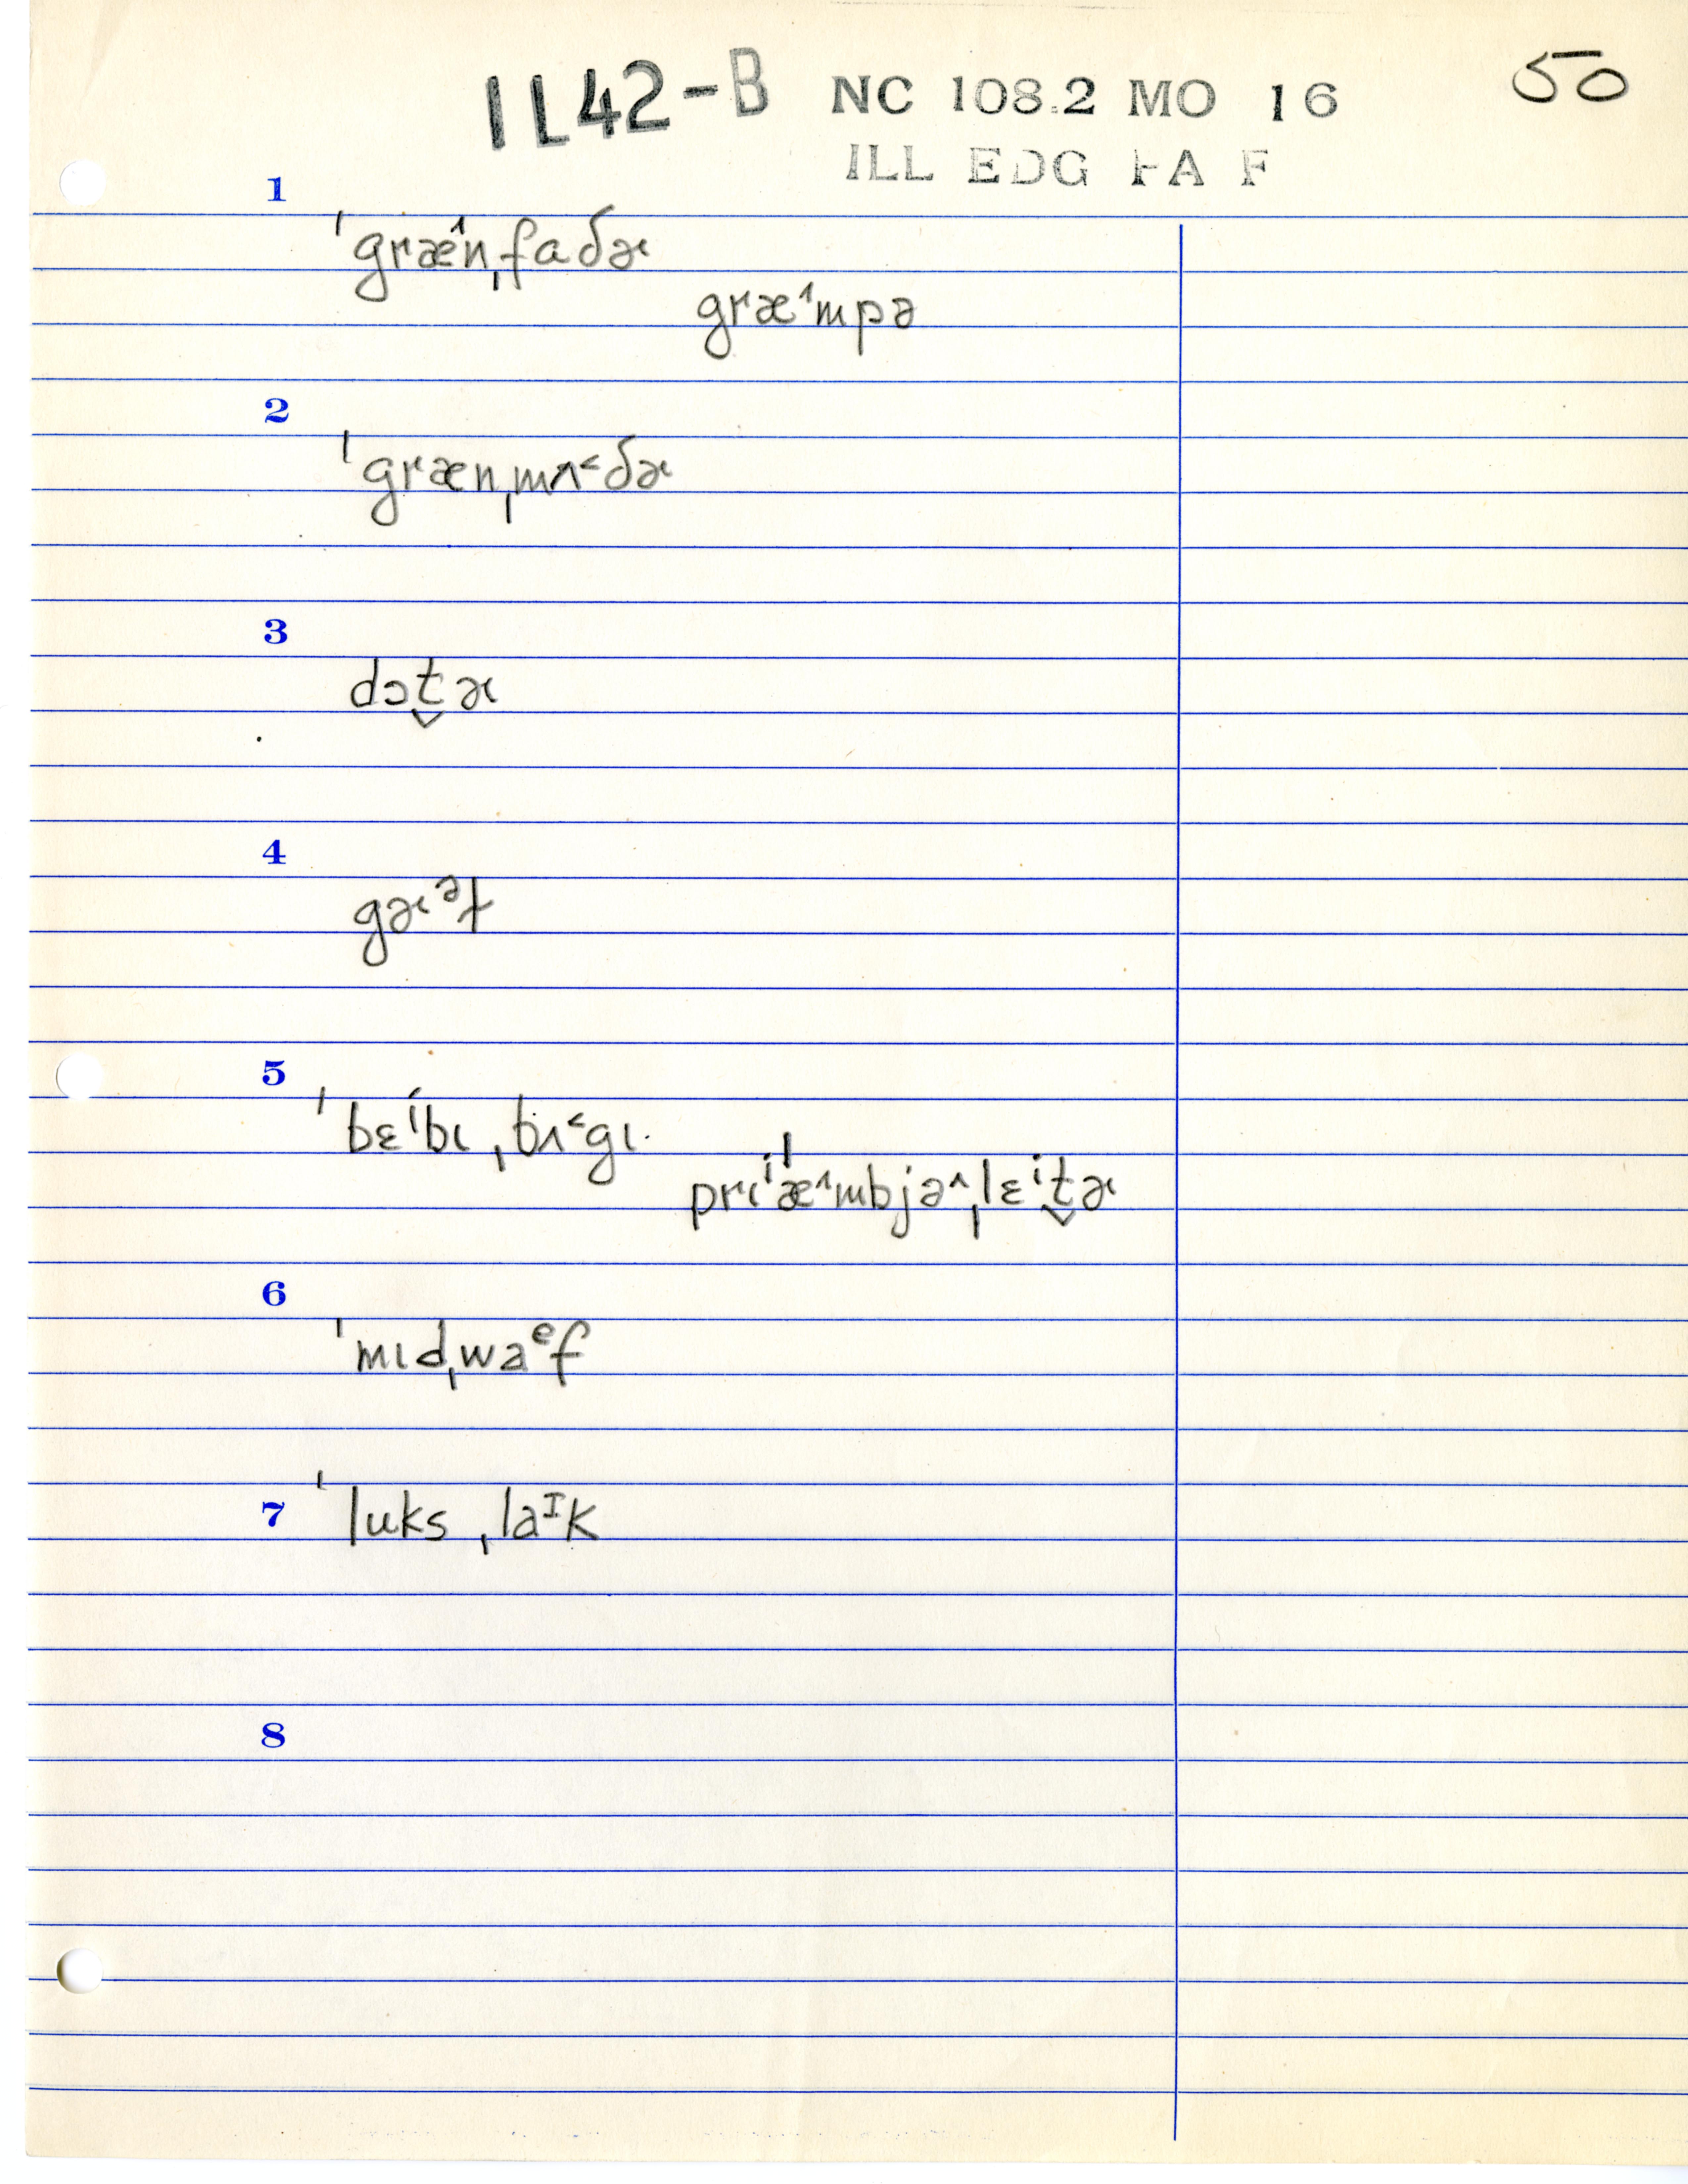 1L42-B NC 108.2 MO 16 50
ILL EDG PA F
1
ˈgræ˄nˌfaðɚ
græ˄mpə
2
ˈgrænˌmʌ˂ðɚ
3
dɔt̬ɚ
4
gɚᵊɫ
5
ˈbɛⁱbɪ ˌbʌ˂gɪ
prɪⁱˈæ˄mbjə˄ˌlɛⁱt̬ɚ
6
ˈmɪdˌwaᵉf
7
ˈluks ˌlaᶦk
8